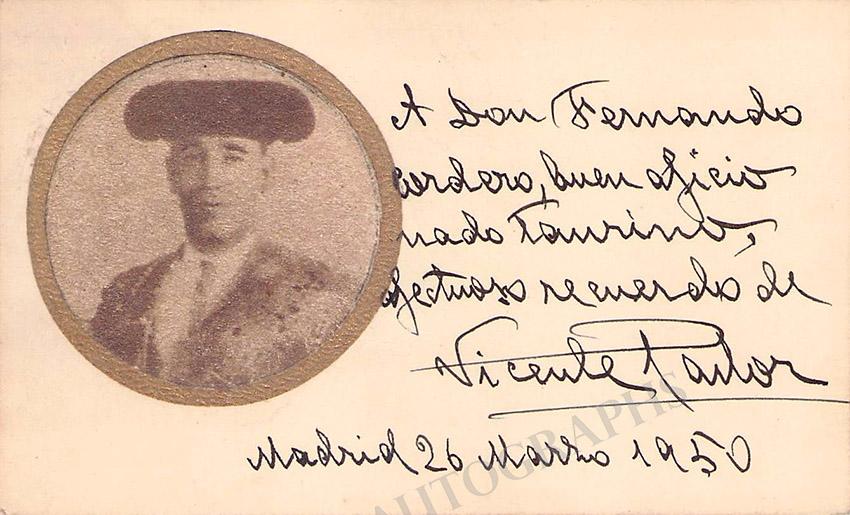 A Don Fernando
cordero, buen aficio
nado Taurino,
afectuoso recuerdo de
Vicente Pastor
Madrid 26 Marzo 1950
AUTOGRAPHS